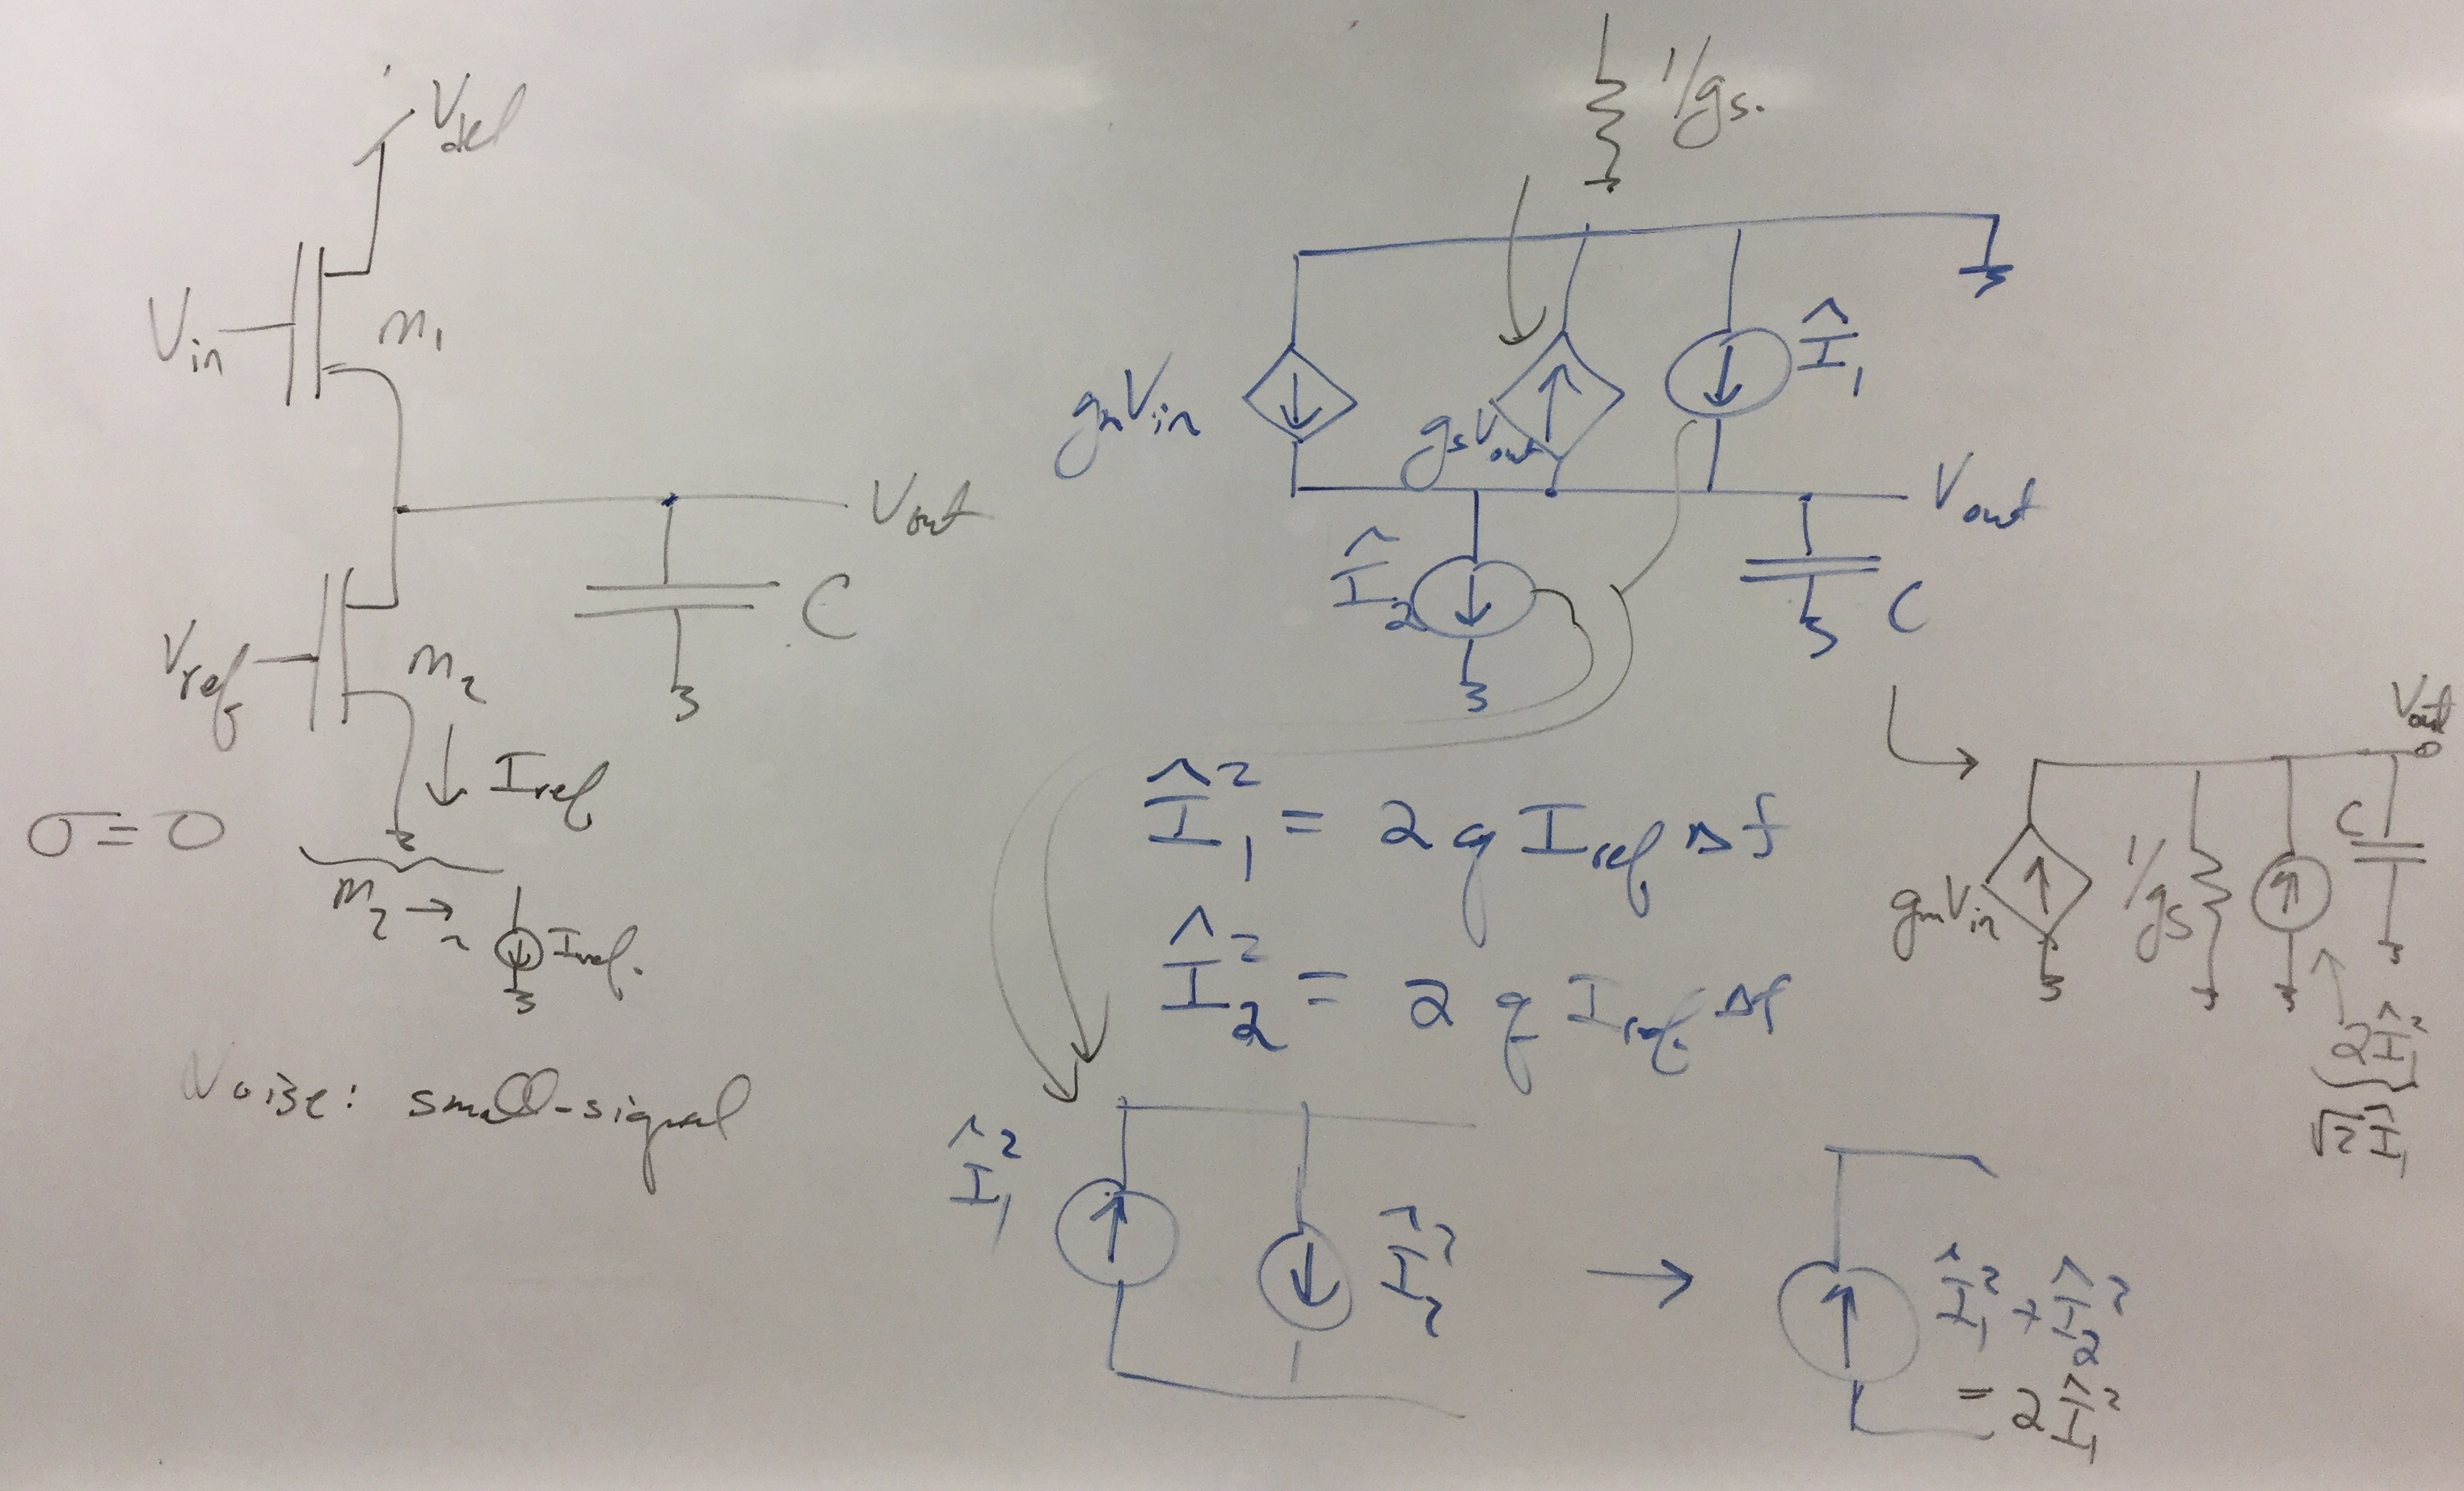 Vdd
Vin
M1
Vout
C
Vref
M2
Iref
σ = 0
M2 →
Iref.
Noise: small-signal
1/gs.
gmVin
gsVout
Î1
Vout
Î2
C
Î1² = 2 q Iref Δf
Î2² = 2 q Iref Δf
Î1²
Î2²
→
Î1² + Î2²
= 2Î1²
Vout
gmVin
1/gs
C
2Î1²
√2 Î1